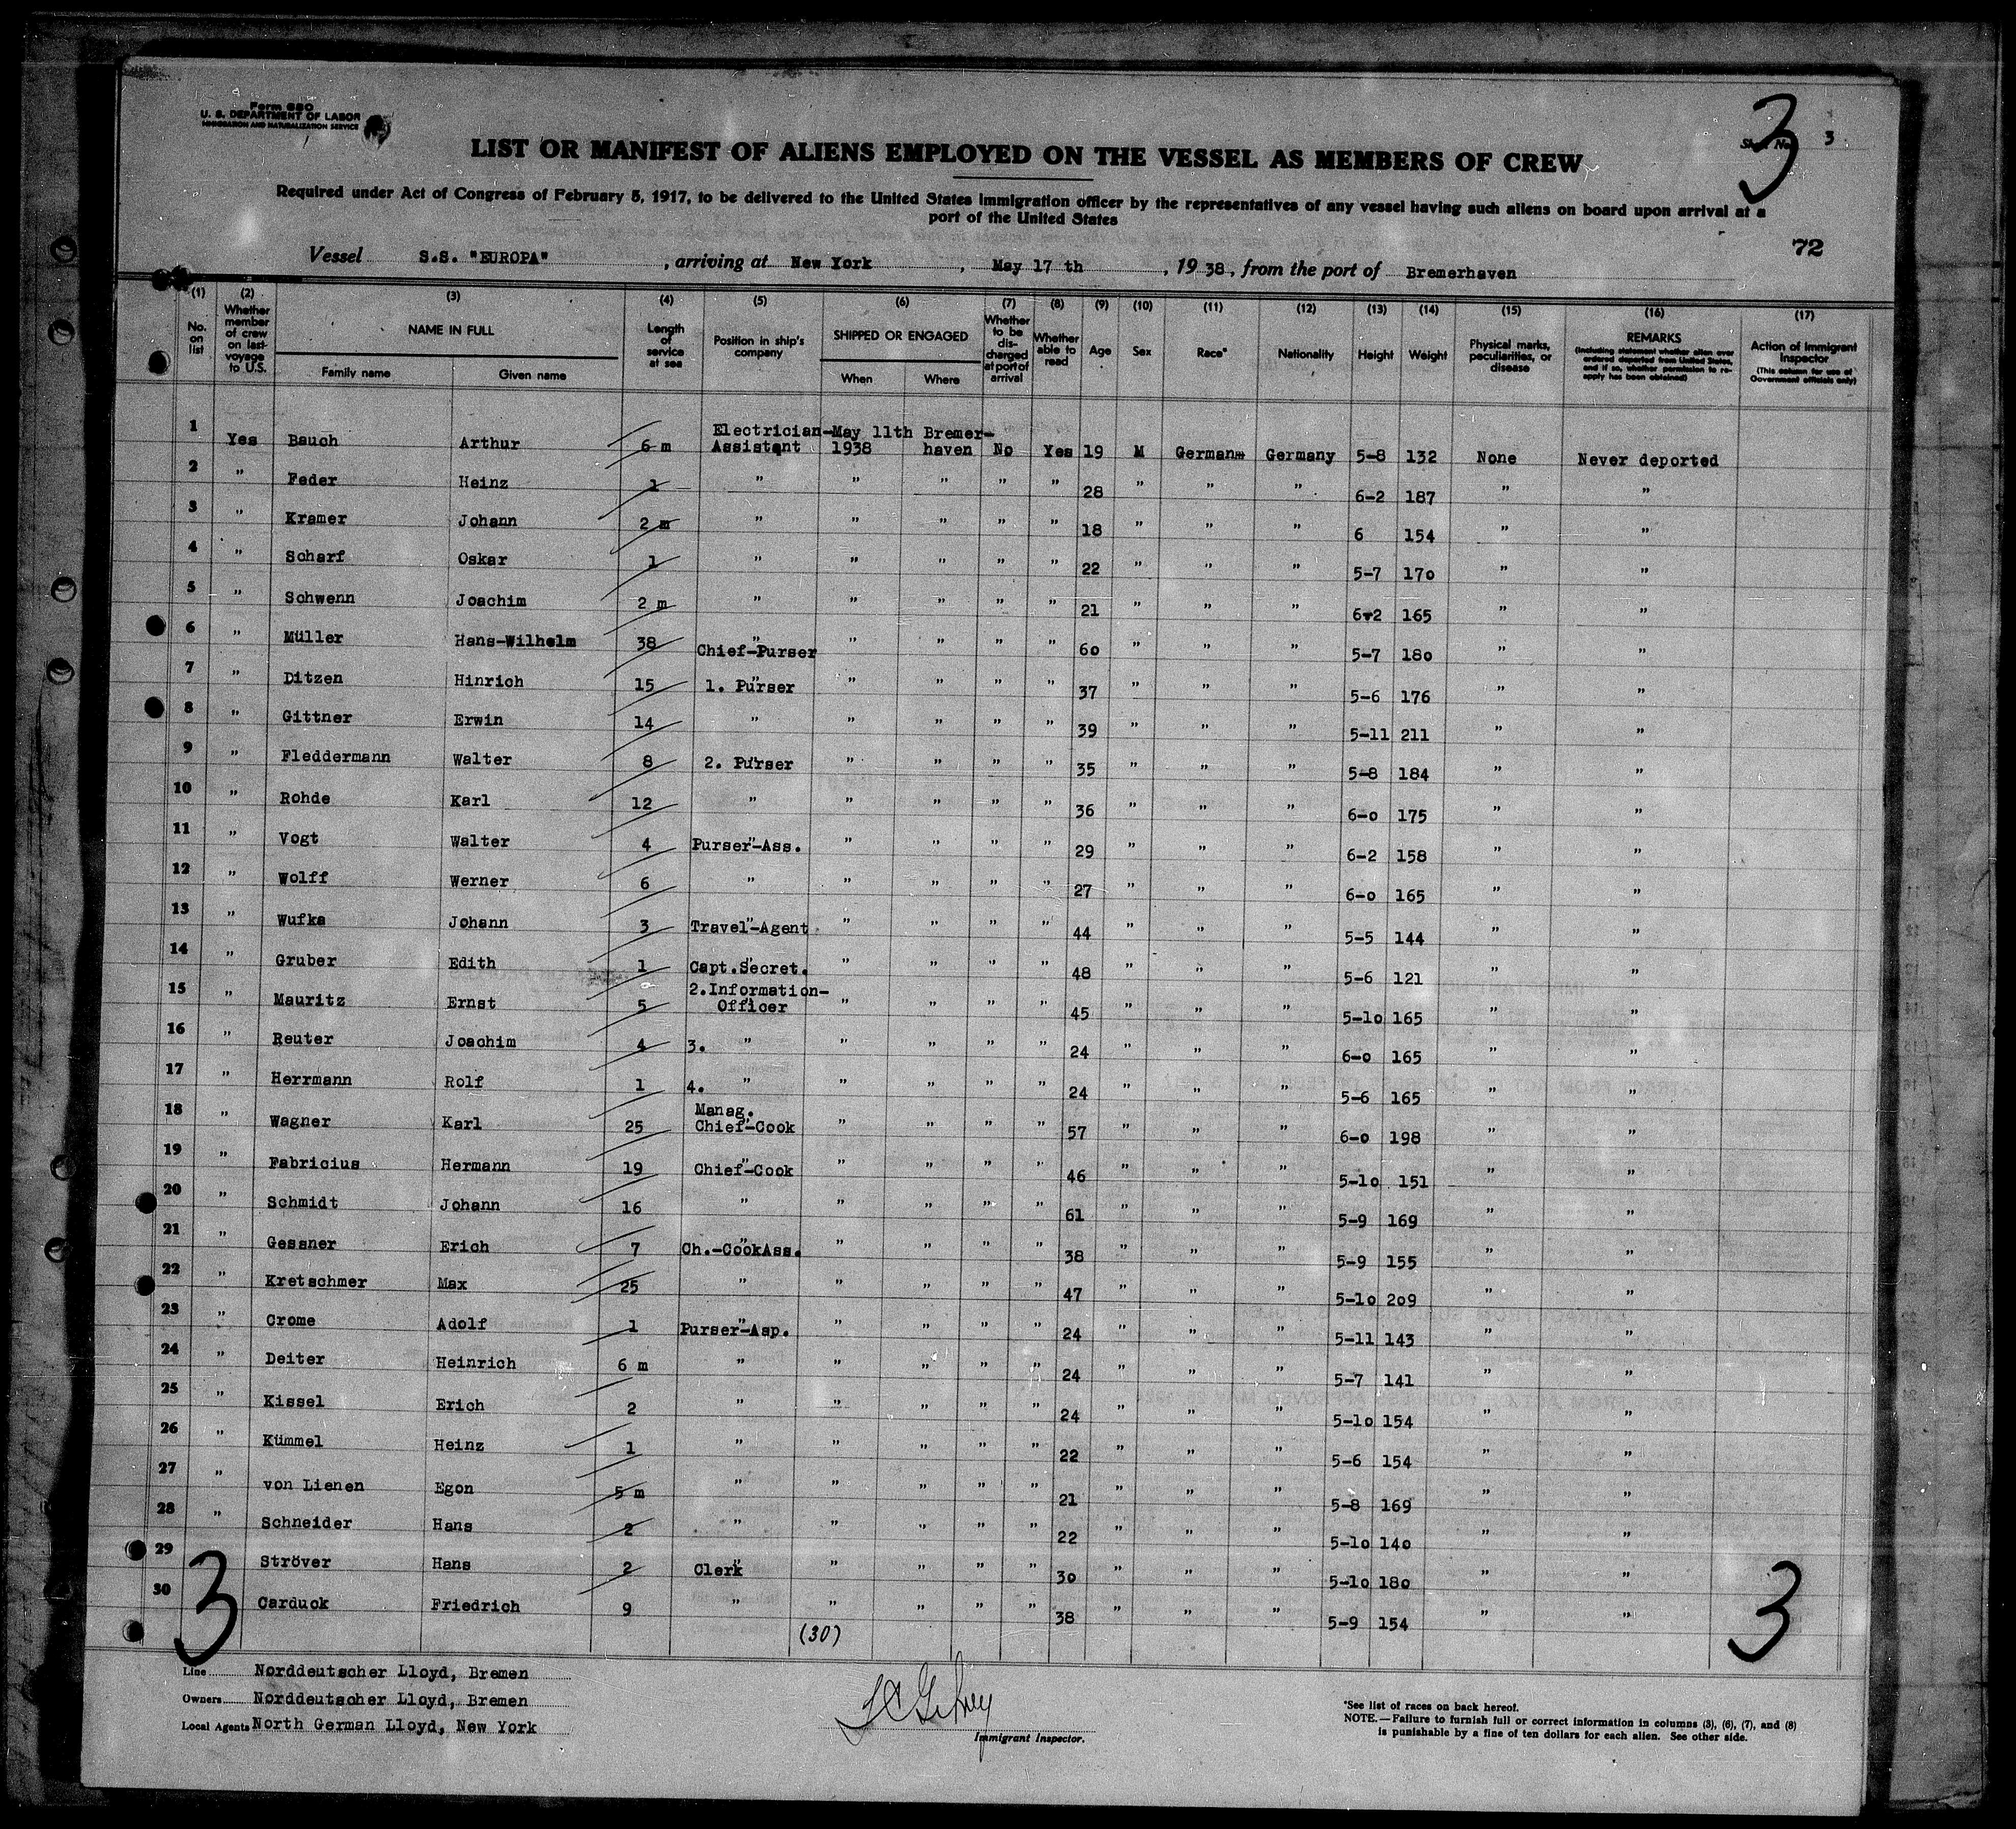 Form 680
U. S. DEPARTMENT OF LABOR
IMMIGRATION AND NATURALIZATION SERVICE
3
3
LIST OR MANIFEST OF ALIENS EMPLOYED ON THE VESSEL AS MEMBERS OF CREW
Required under Act of Congress of February 5, 1917, to be delivered to the United States immigration officer by the representatives of any vessel having such aliens on board upon arrival at a
port of the United States
72
Vessel S.S. "EUROPA", arriving at New York, May 17 th, 1938, from the port of Bremerhaven
(1) (2) (3) (4) (5) (6) (7) (8) (9) (10) (11) (12) (13) (14) (15) (16) (17)
No. on list
Whether member of crew on last voyage to U.S.
NAME IN FULL
Family name Given name
Length of service at sea
Position in ship's company
SHIPPED OR ENGAGED
When Where
Whether to be discharged at port of arrival
Whether able to read
Age
Sex
Race*
Nationality
Height
Weight
Physical marks, peculiarities, or disease
REMARKS
(Including statement whether alien ever ordered deported from United States, and if so, whether permission to reapply has been obtained)
Action of Immigrant Inspector
(This column for use of Government officials only)
1 Yes Bauch Arthur 6 m Electrician-Assistant May 11th 1938 Bremerhaven No Yes 19 M German Germany 5-8 132 None Never deported
2 " Feder Heinz 1 " " " " " 28 " " " 6-2 187 " "
3 " Kramer Johann 2 m " " " " " 18 " " " 6 154 " "
4 " Scharf Oskar 1 " " " " " 22 " " " 5-7 170 " "
5 " Schwenn Joachim 2 m " " " " " 21 " " " 6-2 165 " "
6 " Müller Hans-Wilhelm 38 Chief-Purser " " " " 60 " " " 5-7 180 " "
7 " Ditzen Hinrich 15 1. Purser " " " " 37 " " " 5-6 176 " "
8 " Gittner Erwin 14 " " " " " 39 " " " 5-11 211 " "
9 " Fleddermann Walter 8 2. Purser " " " " 35 " " " 5-8 184 " "
10 " Rohde Karl 12 " " " " " 36 " " " 6-0 175 " "
11 " Vogt Walter 4 Purser-Ass. " " " " 29 " " " 6-2 158 " "
12 " Wolff Werner 6 " " " " " 27 " " " 6-0 165 " "
13 " Wufka Johann 3 Travel-Agent " " " " 44 " " " 5-5 144 " "
14 " Gruber Edith 1 Capt.Secret. " " " " 48 " " " 5-6 121 " "
15 " Mauritz Ernst 5 2.Information-Officer " " " " 45 " " " 5-10 165 " "
16 " Reuter Joachim 4 3. " " " " " 24 " " " 6-0 165 " "
17 " Herrmann Rolf 1 4. " " " " " 24 " " " 5-6 165 " "
18 " Wagner Karl 25 Manag. Chief-Cook " " " " 57 " " " 6-0 198 " "
19 " Fabricius Hermann 19 Chief-Cook " " " " 46 " " " 5-10 151 " "
20 " Schmidt Johann 16 " " " " " 61 " " " 5-9 169 " "
21 " Gessner Erich 7 Ch.-CookAss. " " " " 38 " " " 5-9 155 " "
22 " Kretschmer Max 25 " " " " " 47 " " " 5-10 209 " "
23 " Crome Adolf 1 Purser-Asp. " " " " 24 " " " 5-11 143 " "
24 " Deiter Heinrich 6 m " " " " " 24 " " " 5-7 141 " "
25 " Kissel Erich 2 " " " " " 24 " " " 5-10 154 " "
26 " Kümmel Heinz 1 " " " " " 22 " " " 5-6 154 " "
27 " von Lienen Egon 5 m " " " " " 21 " " " 5-8 169 " "
28 " Schneider Hans 2 " " " " " 22 " " " 5-10 140 " "
29 Ströver Hans 2 Clerk " " " " 30 " " " 5-10 180 " "
30 Carduck Friedrich 9 " " " " " 38 " " " 5-9 154 " "
3 (30) 3
Line Norddeutscher Lloyd, Bremen
Owners Norddeutscher Lloyd, Bremen
Local Agents North German Lloyd, New York
Immigrant Inspector.
*See list of races on back hereof.
NOTE.—Failure to furnish full or correct information in columns (3), (6), (7), and (8)
is punishable by a fine of ten dollars for each alien. See other side.